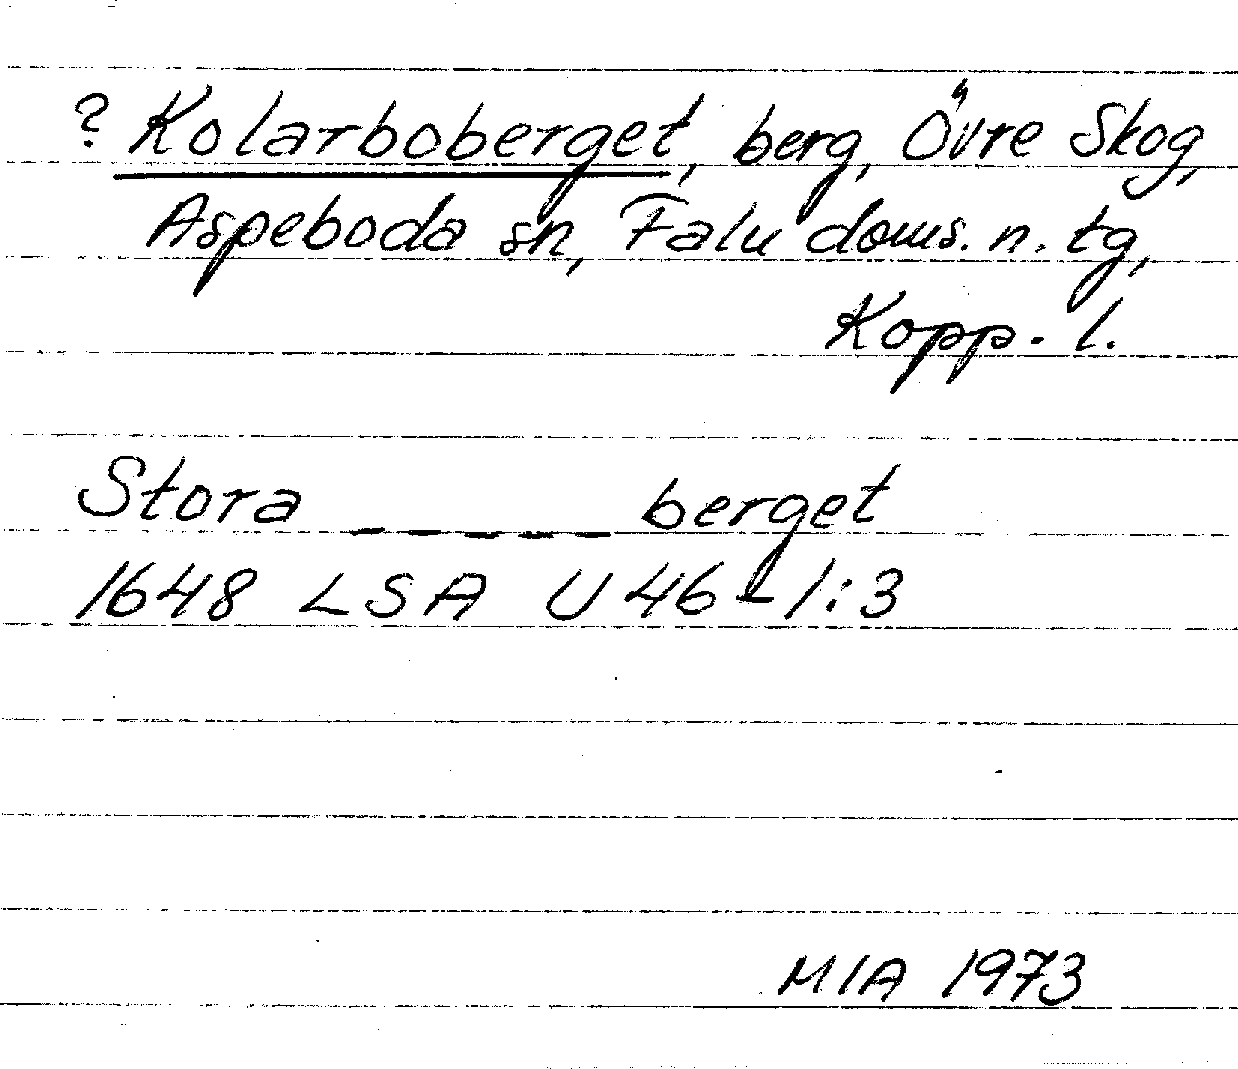 ? Kolarboberget, berg, Övre Skog,
Aspeboda sn, Falu doms. n. tg,
Kopp. l.
Stora _ _ _ _ _ berget
1648 LSA U 46-1:3
MIA 1973